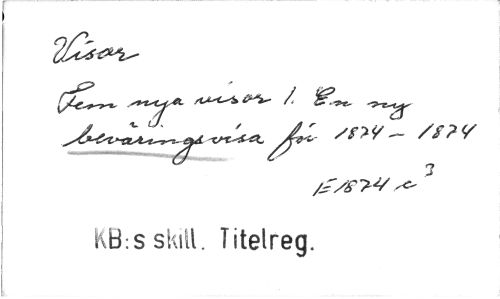 Visor
Fem nya visor 1. En ny
beväringsvisa för 1874 - 1874
E 1874 c 3
KB:s skill. Titelreg.